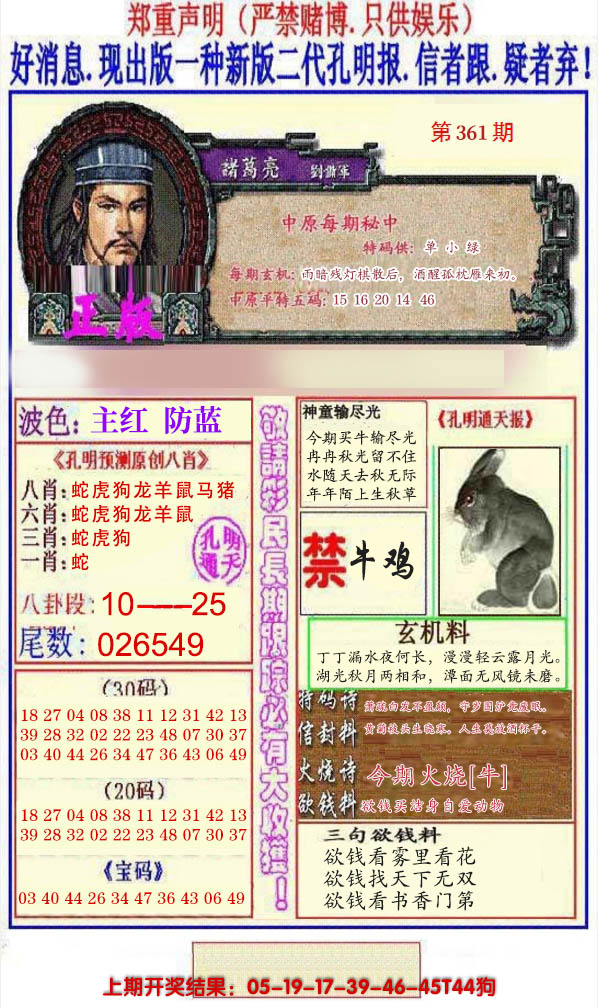 郑重声明（严禁赌博.只供娱乐）
好消息.现出版一种新版二代孔明报.信者跟.疑者弃!
第361期
諸葛亮
中原每期秘中
特码供：单小绿
每期玄机：雨暗残灯棋散后，酒醒孤枕雁来初。
中原平特五码：15 16 20 14 46
正版
波色：主红 防蓝
《孔明预测原创八肖》
八肖：蛇虎狗龙羊鼠马猪
六肖：蛇虎狗龙羊鼠
三肖：蛇虎狗
一肖：蛇
孔明
通天
八卦段：10——25
尾数：026549
（30码）
18 27 04 08 38 11 12 31 42 13
39 28 32 02 22 23 48 07 30 37
03 40 44 26 34 47 36 43 06 49
（20码）
18 27 04 08 38 11 12 31 42 13
39 28 32 02 22 23 48 07 30 37
《宝码》
03 40 44 26 34 47 36 43 06 49
敬請彩民長期跟踪必有大收獲！
神童输尽光
今期买牛输尽光
冉冉秋光留不住
水随天去秋无际
年年陌上生秋草
《孔明通天报》
禁
牛鸡
玄机料
丁丁漏水夜何长，漫漫轻云露月光。
湖光秋月两相和，潭面无风镜未磨。
特码诗
萧疏白发不盈颠，守岁围炉竟废眠。
信封料
黄菊枝头生晓寒，人生莫放酒杯干。
火烧诗
今期火烧[牛]
欲钱料
欲钱买洁身自爱动物
三句欲钱料
欲钱看雾里看花
欲钱找天下无双
欲钱看书香门第
上期开奖结果：05-19-17-39-46-45T44狗